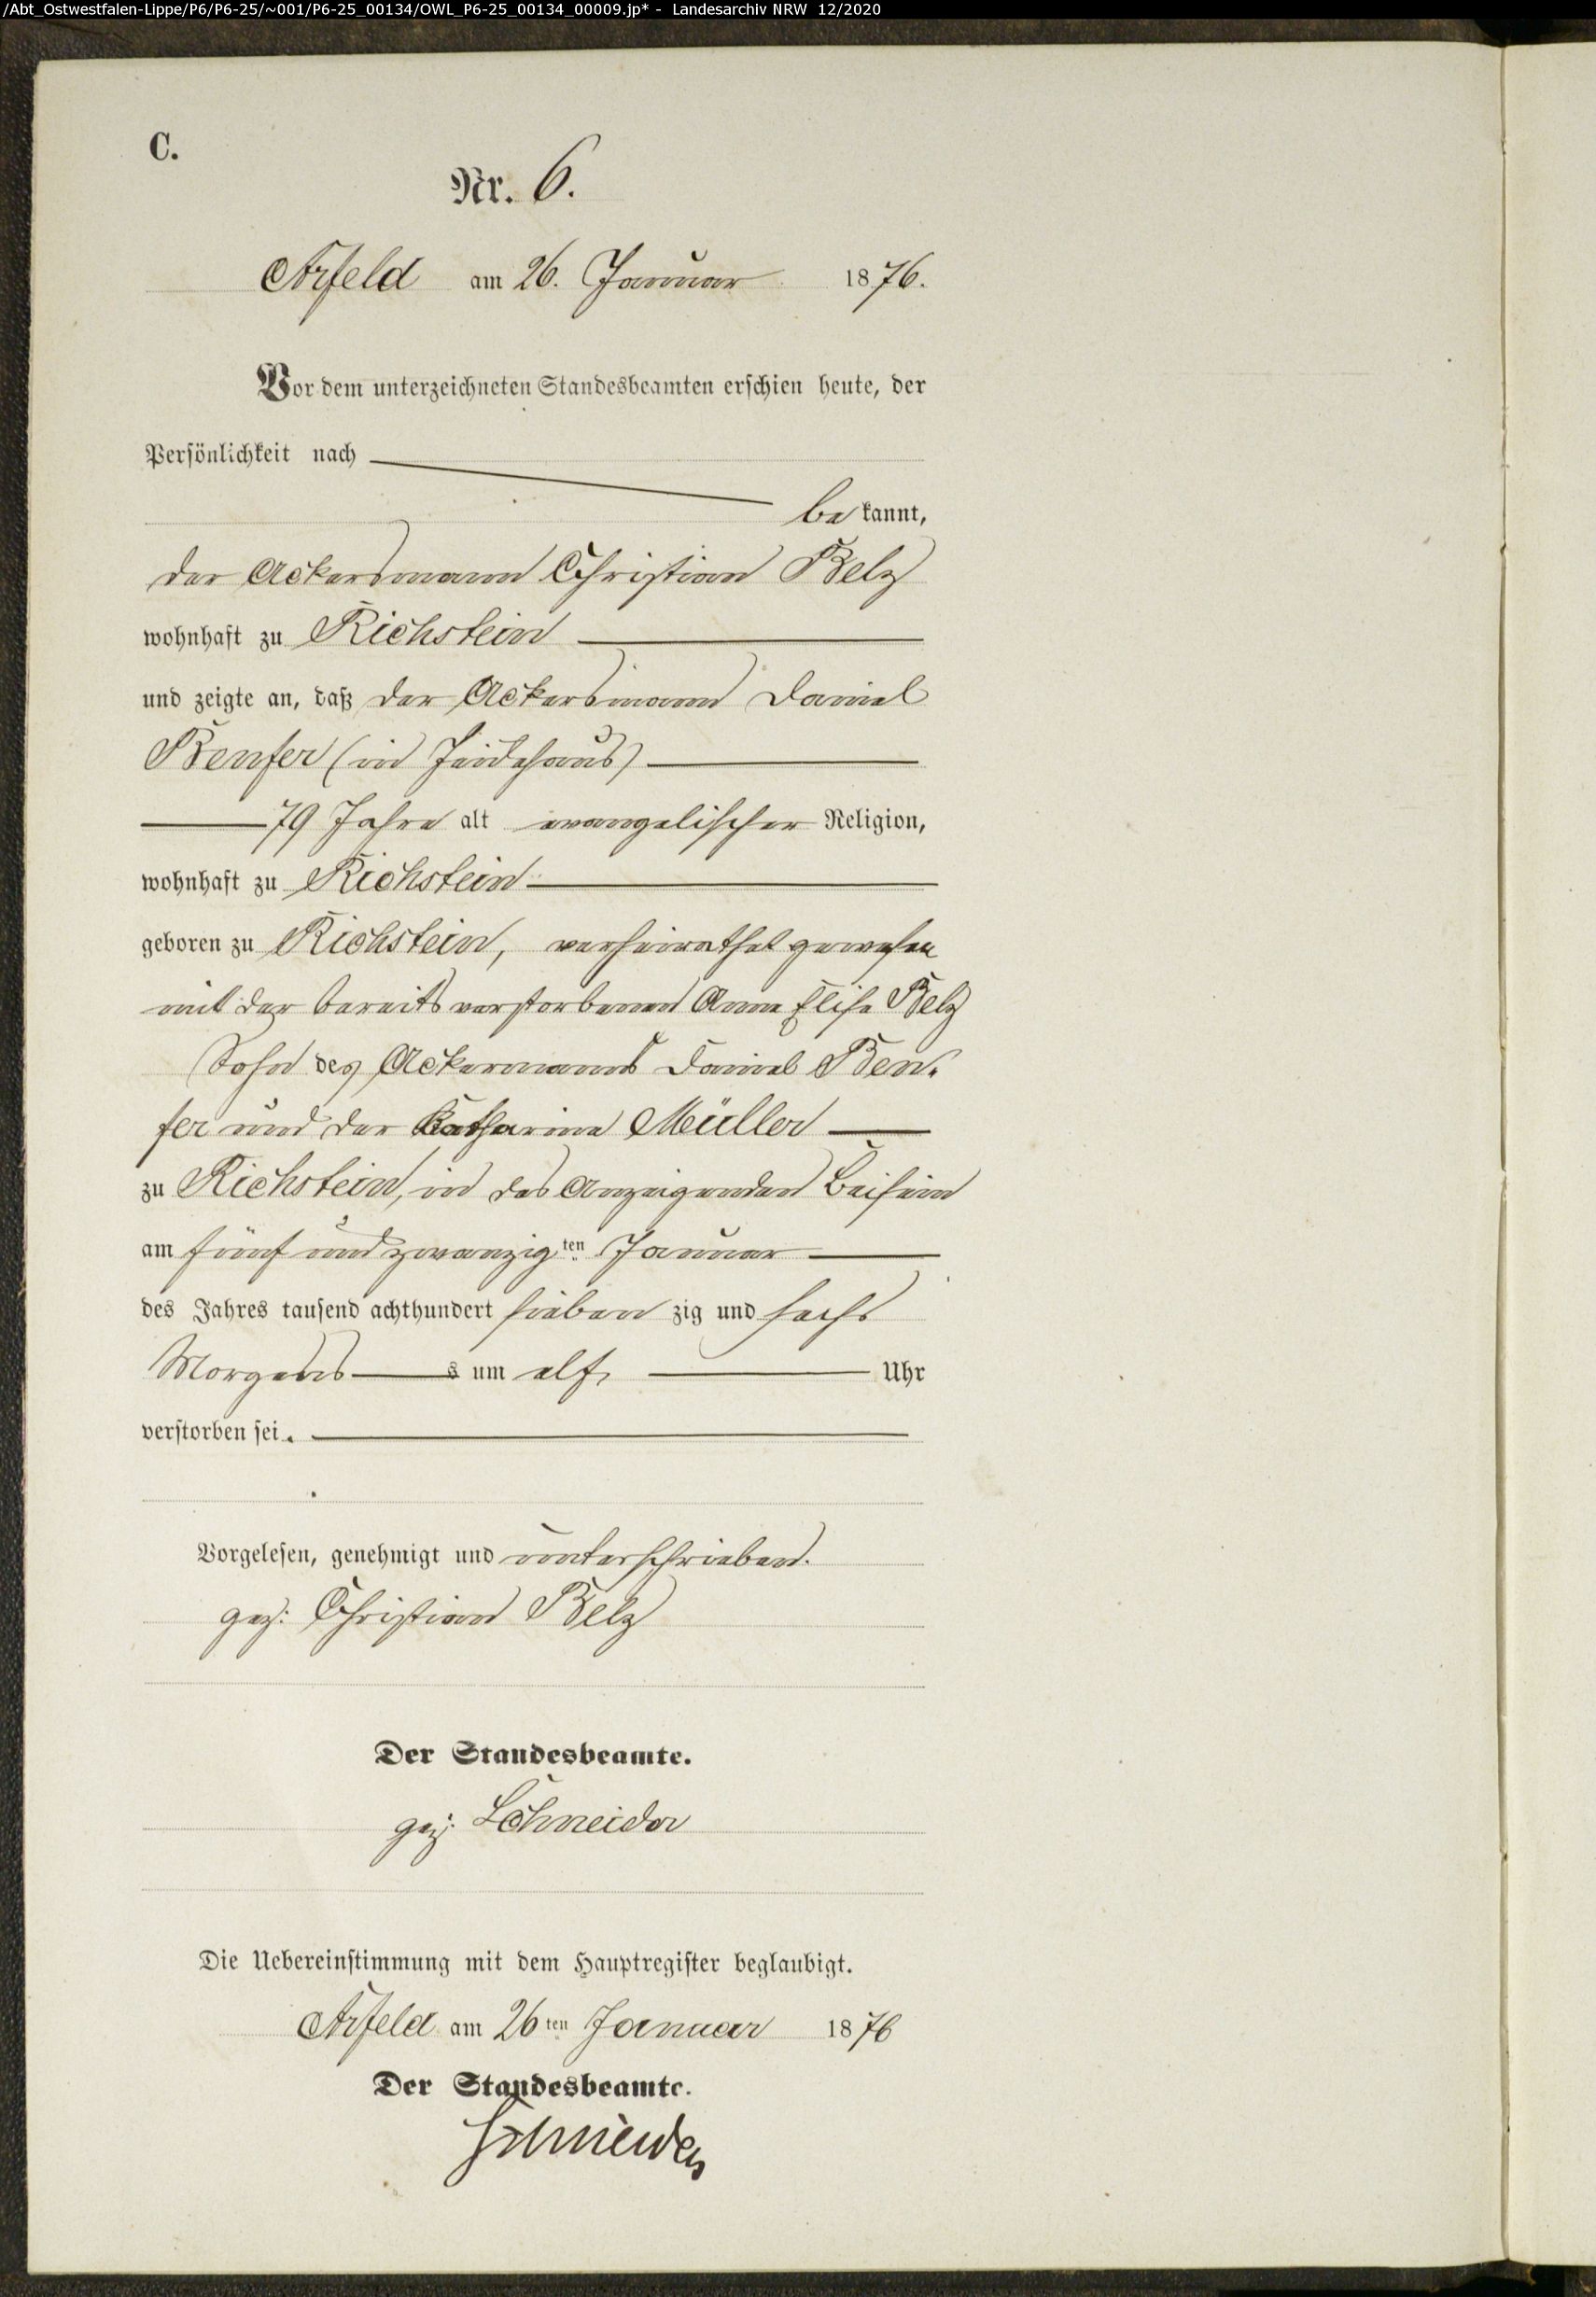 /Abt_Ostwestfalen-Lippe/P6/P6-25/~001/P6-25_00134/OWL_P6-25_00134_00009.jp* - Landesarchiv NRW 12/2020
C.
Nr. 6.
Arfeld am 26. Januar 1876.
Vor dem unterzeichneten Standesbeamten erschien heute, der
Persönlichkeit nach
be kannt,
der Ackersmann Christian Belz
wohnhaft zu Richstein
und zeigte an, daß der Ackersmann Daniel
Benfer (in
79 Jahre alt evangelischer Religion,
wohnhaft zu Richstein
geboren zu Richstein, verheirathet gewesen
mit der bereits verstorbenen Anna Elise Belz
Sohn des Ackermanns Daniel Ben-
fer und der Katharine Müller
zu Richstein, in des Anzeigenden Beisein
am fünf und zwanzig ten Januar
des Jahres tausend achthundert sieben zig und sechs
Morgens s um elf, Uhr
verstorben sei.
Vorgelesen, genehmigt und unterschrieben.
gez: Christian Belz
Der Standesbeamte.
gez. Schneider
Die Uebereinstimmung mit dem Hauptregister beglaubigt.
Arfeld am 26 ten Januar 1876
Der Standesbeamte.
Schneider